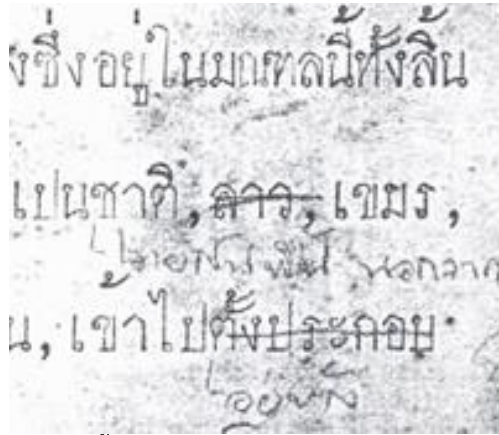 งซึ่งอยู่ในมณฑลนี้ทั้งสิ้น
เปนชาติ, ลาว, เขมร,
ไทยพื้น นอกจาก
น, เข้าไปตั้งประกอบ
อยู่